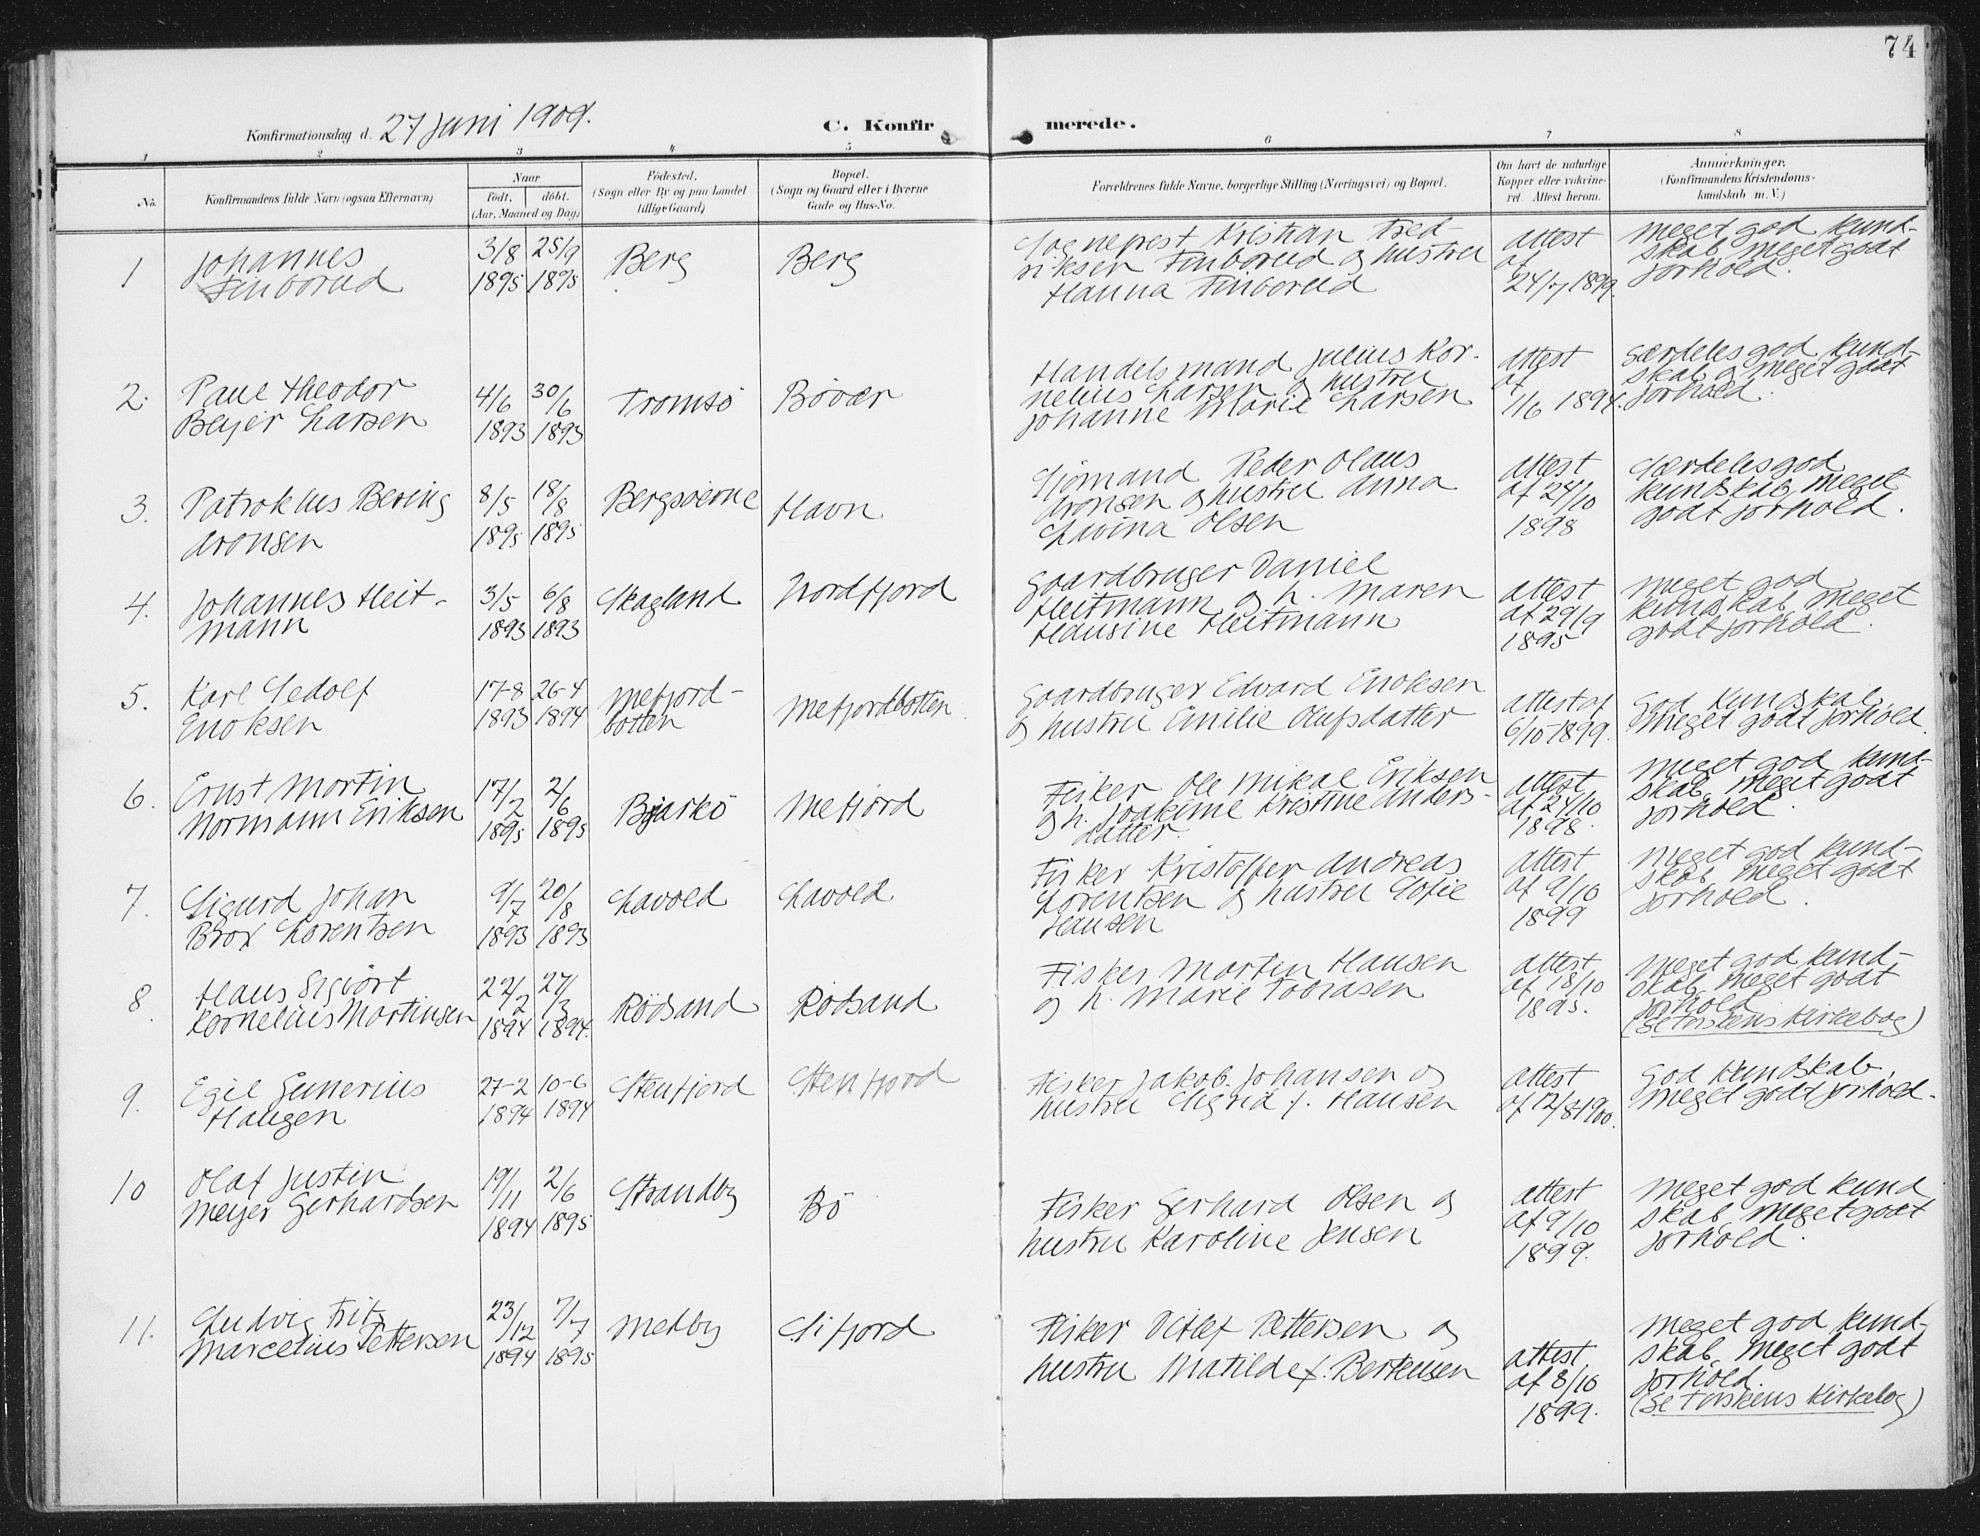 74
Konfirmationsdag d. 27 Juni 1909.
C. Konfirmerede.
1 2 3 4 5 6 7 8
No.
Konfirmandens fulde Navn (ogsaa Efternavn)
Naar
født. døbt.
(Aar, Maaned og Dag)
Fødested.
(Sogn eller By og paa Landet
tillige Gaard)
Bopæl.
(Sogn og Gaard eller i Byerne
Gade og Hus-No.
Forældrenes fulde Navne, borgerlige Stilling (Næringsvei) og Bopæl.
Om havt de naturlige
Kopper eller vakcine-
ret. Attest herom.
Anmærkninger.
(Konfirmandens Kristendoms-
kundskab m. V.)
1
Johannes
Finborud
3/8 25/9
1895 1895
Berg
Berg
Sogneprest Kristian Fred-
riksen Finborud og hustru
Hanna Finborud
attest
af
24/7 1899.
Meget god kund-
skab, meget godt
forhold.
2.
Paul Theodor
Beyer Larsen
4/6 30/6
1893 1893
Tromsö
Bövær
Handelsmand Julius Kor-
nelius Larsen og hustru
Johanne Marie Larsen
attest
af
1/6 1894.
Særdeles god kund-
skab og meget godt
forhold.
3.
Patroklus Bering
Aronsen
8/5 18/8
1895 1895
Bergsøerne
Havn
Sjömand Peder Olaus
Aronsen og hustru Anna
Lavina Olsen
attest
af 24/10
1898
Særdeles god
kundskab, meget
godt forhold.
4.
Johannes Heit-
mann
3/5 6/8
1893 1893
Skagland
Nordfjord
Gaardbruger Daniel
Heitmann og h. Maren
Hansine Heitmann
attest
af 29/9
1895
Meget god
kundskab, meget
godt forhold.
5.
Karl Sedolf
Enoksen
17-8 26-4
1893 1894
Mefjord-
botten
Mefjordbotten
Gaardbruger Edvard Enoksen
og hustru Emilie Olufsdatter
attest af
6/10 1899.
God kundskab,
meget godt forhold.
6.
Ernst Mortin
Normann Eriksen
17/2 2/6
1895 1895
Bjarkö
Mefjord
Fisker Ole Mikal Eriksen
og h. Joakime Kristine Anders-
datter
attest
af 24/10
1898.
Meget god kund-
skab, meget godt
forhold.
7.
Sigurd Johan
Brox Lorentsen
9/7 20/8
1893 1893
Lavold
Lavold
Fisker Kristoffer Andreas
Lorentsen og hustru Sofie
Hansen
attest
af 9/10
1899
Meget god kund-
skab, meget godt
forhold.
8.
Hans Sigvört
Kornelius Martinsen
22/2 27/3
1894 1894.
Rödsand
Rödsand
Fisker Martin Hansen
og h. Marie Tobiasen
attest
af 18/10
1895.
Meget god kund-
skab, meget godt
forhold
(Se Torskens kirkebog)
9.
Egil Gunerius
Haugen
27-2 10-6
1894 1894
Stenfjord
Stenfjord
Fisker Jakob Johansen og
hustru Sigrid f. Hansen
attest
af 12/8 1900.
God kundskab,
meget godt forhold.
10
Olaf Justin
Meyer Gerhardsen
19/11 2/6
1894 1895
Strandby
Bö
Fisker Gerhard Olsen og
hustru Karoline Jensen
attest
af 9/10
1899.
Meget god kund
skab, meget godt
forhold.
11.
Ludvig Fritz
Marcelius Pettersen
23/12 7/7
1894 1895
Medby
Sifjord
Fisker Ditlef Pettersen og
hustru Matilde f. Berteusen
attest
af 8/10
1899.
Meget god kund-
skab, meget godt
forhold.
(Se Torskens kirkebog)